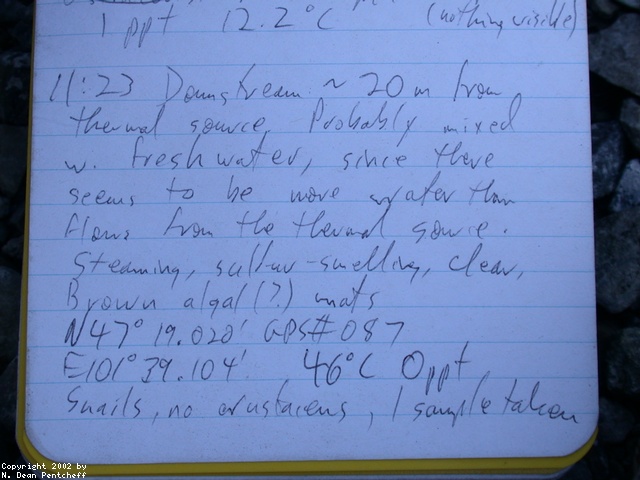 1 ppt 12.2°C (nothing visible)
11:23 Downstream ~ 20 m from
thermal source. Probably mixed
w. fresh water, since there
seems to be more water than
flows from the thermal source.
Steaming, sulfur-smelling, clear,
Brown algal(?) mats
N47° 19.028' GPS#087
E101° 39.104' 46°C 0ppt
Snails, no crustaceans, 1 sample taken
Copyright 2002 by
N. Dean Pentcheff